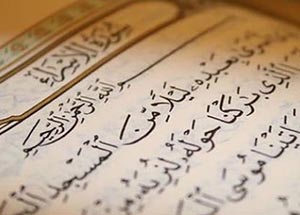 سُورَةُ الْإِسْرَاءِ
اللَّهِ الرَّحْمَٰنِ الرَّحِيمِ
أَسْرَىٰ بِعَبْدِهِ لَيْلًا مِّنَ الْمَسْجِدِ
الَّذِي بَٰرَكْنَا حَوْلَهُ لِنُرِيَهُ مِنْ
مُوسَى